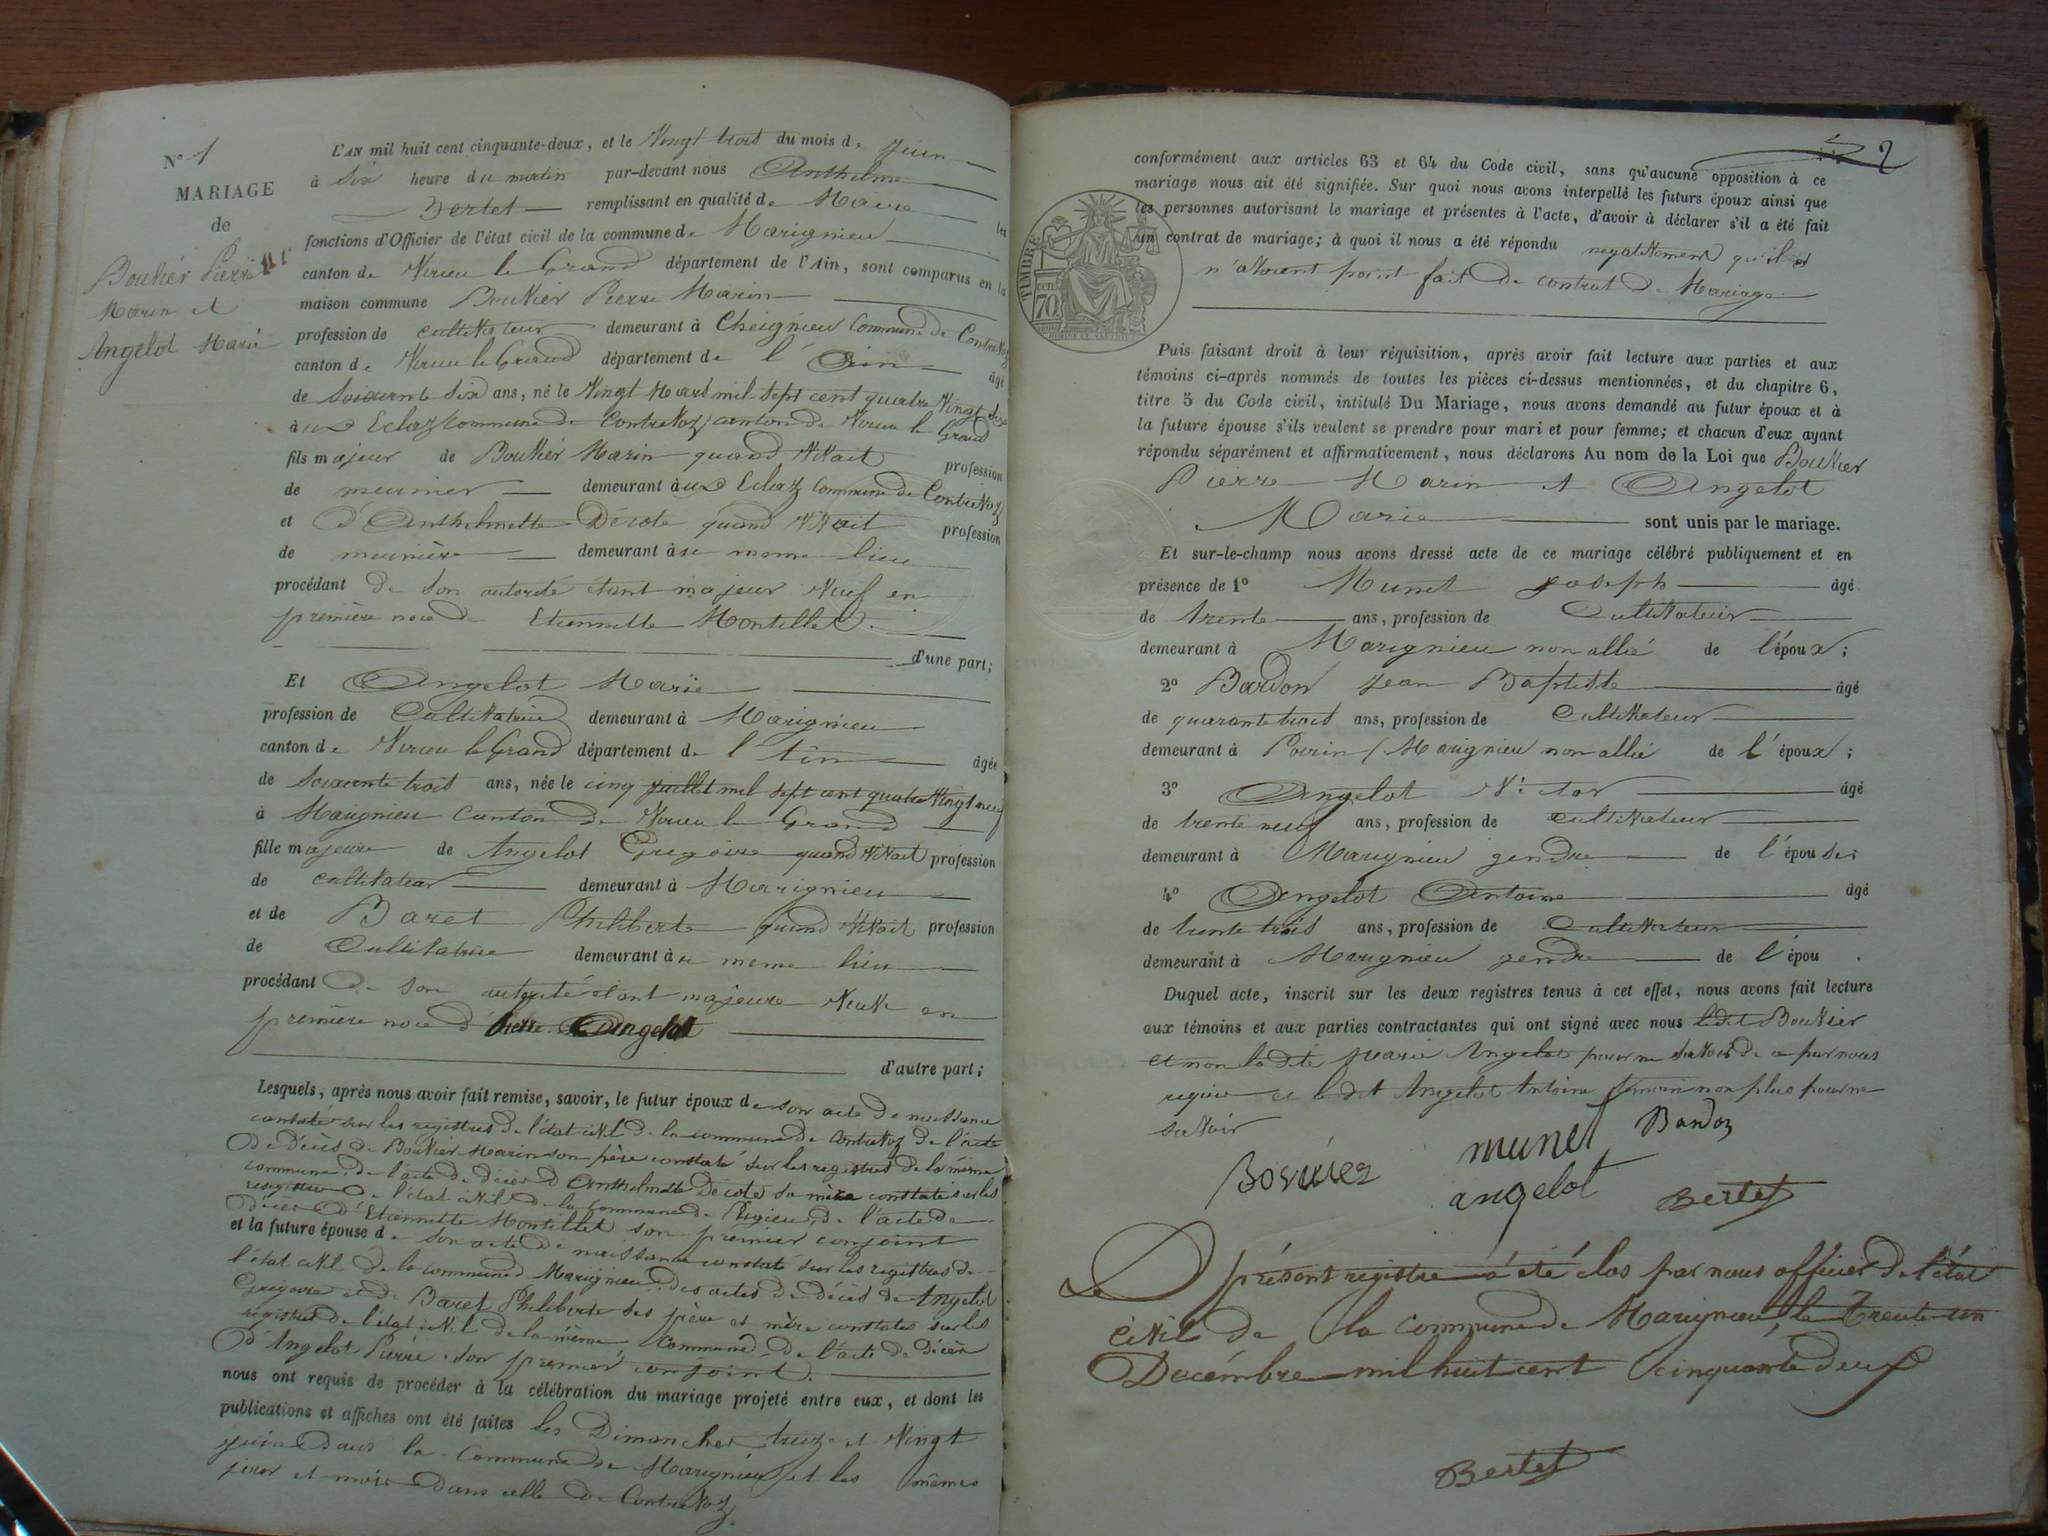 N° 1
MARIAGE
de
Bouvier Pierre
Marin et
Angelot Marie
L'AN mil huit cent cinquante-deux, et le Vingt trois du mois de Juin
à Six heure du matin par-devant nous Anthelme
Bertet remplissant en qualité de Maire les
fonctions d'Officier de l'état civil de la commune de Marignieu
canton de Virieu le Grand département de l'Ain, sont comparus en la
maison commune Bouvier Pierre Marin
profession de cultivateur demeurant à Cheignieu Commune de Contrevoz
canton de Virieu le Grand département de l'Ain âgé
de Soixante Six ans, né le Vingt Mars mil sept cent quatre Vingt Six
à Eclaz Commune de Contrevoz canton de Virieu le Grand
fils majeur de Bouvier Marin quand vivait profession
de meunier demeurant à Eclaz Commune de Contrevoz
et d'Anthelmette Décote quand vivait profession
de meunière demeurant à ce meme lieu
procédant de son autorité étant majeur Veuf en
première noce de Etiennette Montillet.
d'une part;
Et Angelot Marie
profession de Cultivatrice demeurant à Marignieu
canton de Virieu le Grand département de l'Ain âgée
de Soixante trois ans, née le cinq juillet mil sept cent quatre Vingt neuf
à Marignieu Canton de Virieu le Grand
fille majeure de Angelot Grégoire quand vivait profession
de cultivateur demeurant à Marignieu
et de Baret Philiberte quand vivait profession
de Cultivatrice demeurant à ce meme lieu
procédant de son autorité étant majeure Veuve en
première noce d' Angelot
d'autre part;
Lesquels, après nous avoir fait remise, savoir, le futur époux de son acte de naissance
constaté sur les registres de l'état civil de la commune de Contrevoz de l'acte
de décès de Bouvier Marin son père constaté sur les registres de la même
commune, de l'acte de décès d'Anthelmette Décote sa mère constaté sur les
registres de l'état civil de la Commune de Pugieu, de l'acte de
décès d'Etiennette Montillet son premier conjoint
et la future épouse de son acte de naissance constaté sur les registres de
l'état civil de la commune de Marignieu des actes de décès de Angelot
Grégoire et de Baret Philiberte ses père et mère constatés sur les
registres de l'état civil de la même Commune, de l'acte de décès
d'Angelot Pierre son premier conjoint.
nous ont requis de procéder à la célébration du mariage projeté entre eux, et dont les
publications et affiches ont été faites les Dimanches treize et Vingt
juin dans la Commune de Marignieu et les mêmes
jour et mois dans celle de Contrevoz.
2
TIMBRE
70
conformément aux articles 63 et 64 du Code civil, sans qu'aucune opposition à ce
mariage nous ait été signifiée. Sur quoi nous avons interpellé les futurs époux ainsi que
les personnes autorisant le mariage et présentes à l'acte, d'avoir à déclarer s'il a été fait
un contrat de mariage; à quoi il nous a été répondu négativement qu'ils
n'avaient point fait de contrat de Mariage.
Puis faisant droit à leur réquisition, après avoir fait lecture aux parties et aux
témoins ci-après nommés de toutes les pièces ci-dessus mentionnées, et du chapitre 6,
titre 5 du Code civil, intitulé Du Mariage, nous avons demandé au futur époux et à
la future épouse s'ils veulent se prendre pour mari et pour femme; et chacun d'eux ayant
répondu séparément et affirmativement, nous déclarons Au nom de la Loi que Bouvier
Pierre Marin et Angelot
Marie sont unis par le mariage.
Et sur-le-champ nous avons dressé acte de ce mariage célébré publiquement et en
présence de 1° Munet Joseph âgé
de trente ans, profession de Cultivateur
demeurant à Marignieu non allié de l'époux;
2° Bardon Jean Baptiste âgé
de quarante trois ans, profession de Cultivateur
demeurant à Poirin / Marignieu non allié de l'époux;
3° Angelot Victor âgé
de trente neuf ans, profession de cultivateur
demeurant à Marignieu gendre de l'épouse;
4° Angelot Antoine âgé
de trente trois ans, profession de Cultivateur
demeurant à Marignieu gendre de l'épou .
Duquel acte, inscrit sur les deux registres tenus à cet effet, nous avons fait lecture
aux témoins et aux parties contractantes qui ont signé avec nous ledit Bouvier
et non ladite Marie Angelot pour ne savoir de ce par nous
requis et ledit Angelot Antoine témoin non plus pour ne
savoir
Bouvier munet Bardon
angelot Bertet
Le présent registre a été clos par nous officier de l'état
civil de la commune de Marignieu, le Trente un
Décembre mil huit cent cinquante deux
Bertet